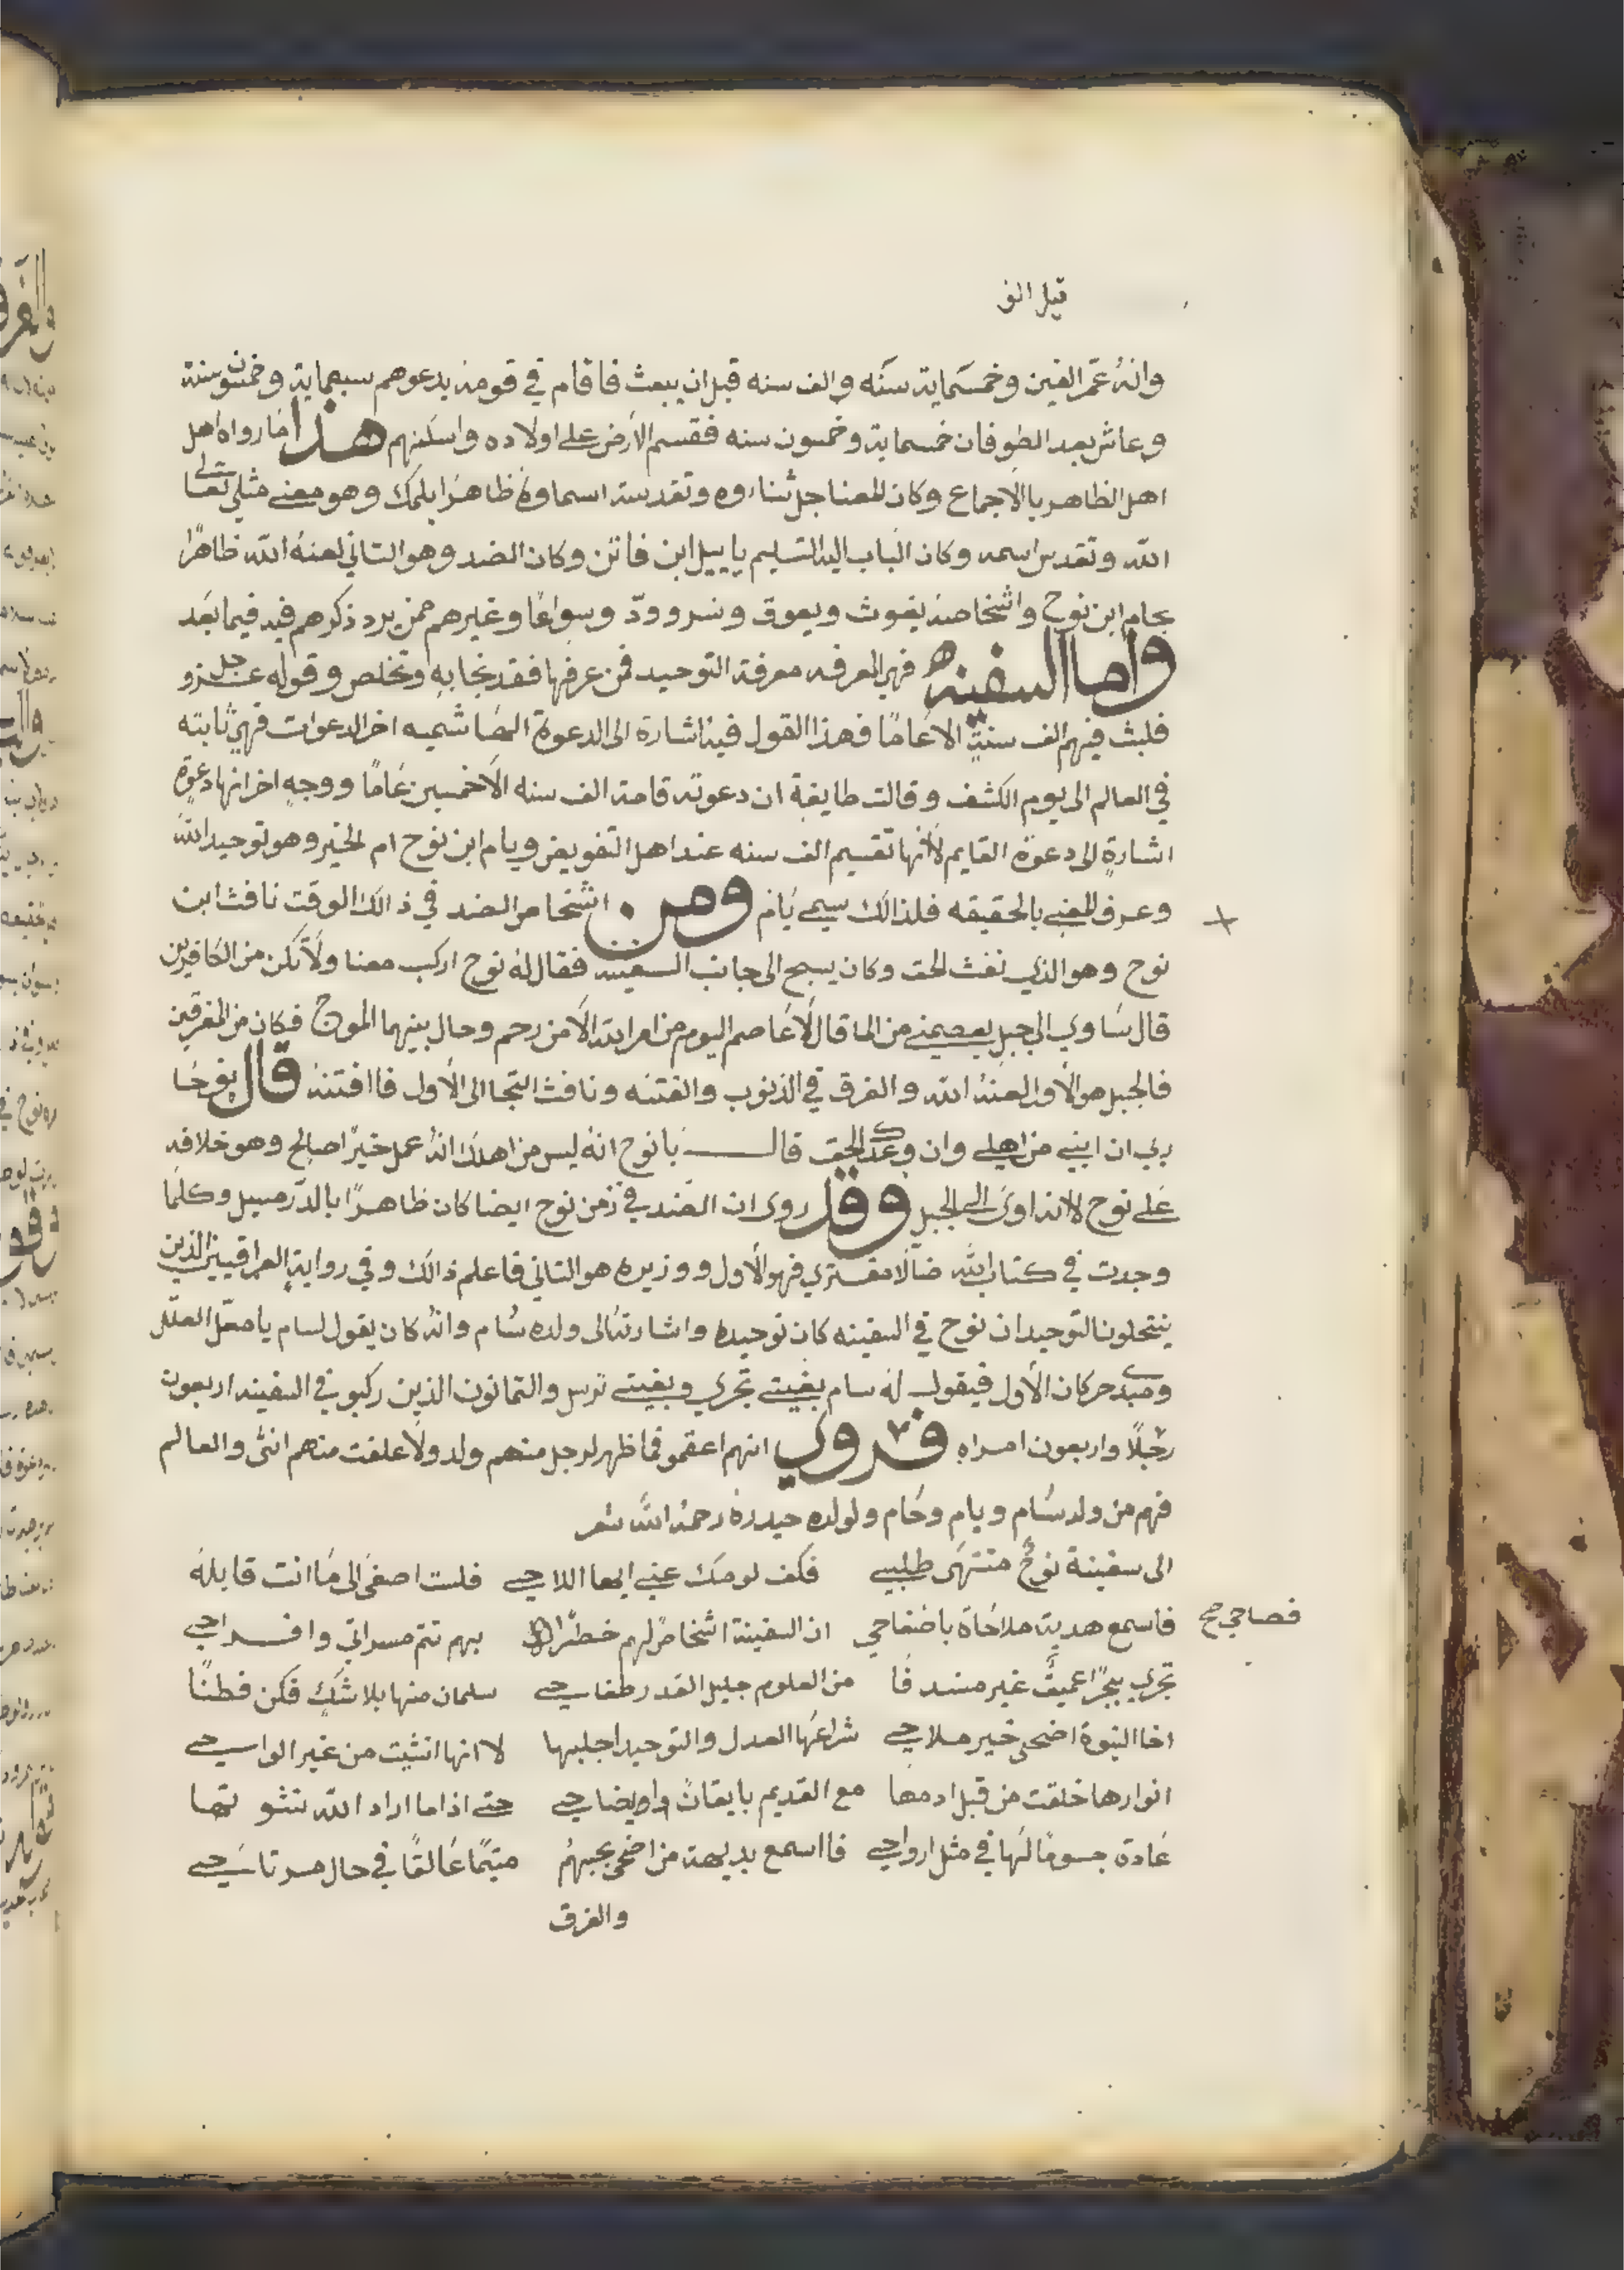 قيل الف
وانهُ عمّر الفين وخمسماية سنَه والف سنه قبل ان يبعث فاقام في قومه يدعوهم سبعماية وخمسون سنة
وعاش بعد الطوفان خمسماية وخمسون سنه فقسم الارض على اولاده واسكنهم هذا ما رواه اهل
اهل الظاهر بالاجماع وكان المعنا جل ثناءوه وتقدسة اسماوهُ ظاهرًا بلمك وهو معني مثلي تعالى
الله وتقدس اسمه وكان الباب اليه التسليم يابيل ابن فاتن وكان الضد وهو التاني لعنهُ الله ظاهرًا
بحام ابن نوح واشخاصهُ يغوث ويعوق ونسر وودّ وسواعًا وغيرهم ممن يرد ذكرهم فيه فيما بعَد
واما السفينه فهي المعرفه معرفة التوحيد فمن عرفها فقد نجا بهِ وتخلص وقوله عز وجل
فلبث فيهم الف سنةٍ الا عامًا فهذا القول فيهُ اشارة الى الدعوة الهاشميه اخر الدعوات فهي ثابته
في العالم الى يوم الكشف وقالت طايفة ان دعوته قامة الف سنه الاخمسين عامًا ووجهٍ اخر انها دعوة
اشارةٍ الى دعوة القايم لأنها تقسيم الف سنه عند اهل التفويض ويام ابن نوح ام الخير وهو توحيد الله
وعرف المعني بالحقيقه فلذالك سيمي يَام ومن اشخاص الضد في ذالك الوقت نافث ابن
نوح وهو الذي نفث الحق وكان يسبح الى جانب السفينه فقال لهُ نوح اركب معنا ولا تكن من الكافرين
قال ساوي الى جبلٍ يعصمني من الما قال لا عاصم اليوم من امر الله الا من رحم وحال بينهما الموج فكان من المغرقين
فالجبل هو الاول لعنهُ الله والغرق في الذنوب والفتنه ونافث التجا الى الاول فاافتنهُ قال نوحًا
ربي ان ابني من اهلي وان وعدك الحق قال يا نوح انهُ ليس من اهلك انهُ عمل خيرًا صالح وهو خلافه
على نوح لانه اوى الى الجبل وقد روى ان الضد في زمن نوح ايضا كان ظاهرًا بالدرمسيل وكلما
وجدت في كتاب الله ضالًا مفتري فهو الاول ووزيره هو التاني فاعلم ذالك وفي روايةٍ العراقيين الذين
ينتحلون التوحيد ان نوح في السفينه كان توحيده واشارتهُ الى ولده سام وانهُ كان يقول لسام يا معلّ العلل
ومبدي حركات الاول فيقول لهُ سام بغيتي تجري وبغيتي ترسي والتمانون الذين ركبو في السفينه اربعون
رجلًا واربعون امراه فروي انهم اعقمو فما ظهر لرجل منهم ولد ولا علقت منهم انثى والعالم
فهم من ولد سام ويام وحام ولولده حيدرهُ رحمهُ الله شعر
الى سفينة نوحٌ منتهى طلبي فكف لومك عني ايها اللاحي فلست اصغى الى ما انت قايلهُ
فاسمع هدية ملاحاة باصفاحي ان السفينة اشخاص لهم خطرًا بهم تتم مسراتي وافراحي
فصاحي صح
تجري ببحرًا عميقٌ غير منسدفًا من العلوم جليل القدر طفاحي سلمان منها بلا شكٍ فكن فطنًا
اخا النبوة اضحى خير ملاحي شراعها العدل والتوحيد اجلبها لا انها انثيت من غير الواحي
انوارها خلقت من قبل ادمها مع القديم بايقانٌ وايضاحي حتي اذا ما اراد الله نشوتها
عادة جسومًا لها في مثل ارواحي فااسمع بديهة من اضحى بحبهمُ متيمًا عالقًا في حال مرتاحي
والغرق